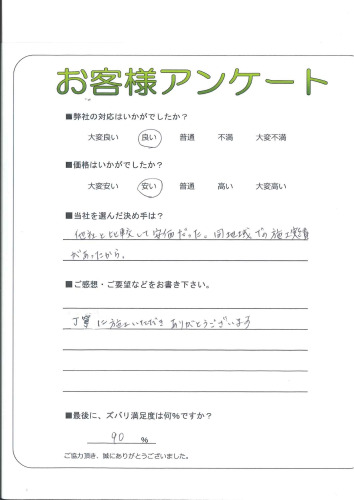 お客様アンケート
■弊社の対応はいかがでしたか？
大変良い 良い 普通 不満 大変不満
■価格はいかがでしたか？
大変安い 安い 普通 高い 大変高い
■当社を選んだ決め手は？
他社と比較して安価だった。同地域での施工実績
があったから。
■ご感想・ご要望などをお書き下さい。
丁寧に施工いただきありがとうございます
■最後に、ズバリ満足度は何％ですか？
90 ％
ご協力頂き、誠にありがとうございました。